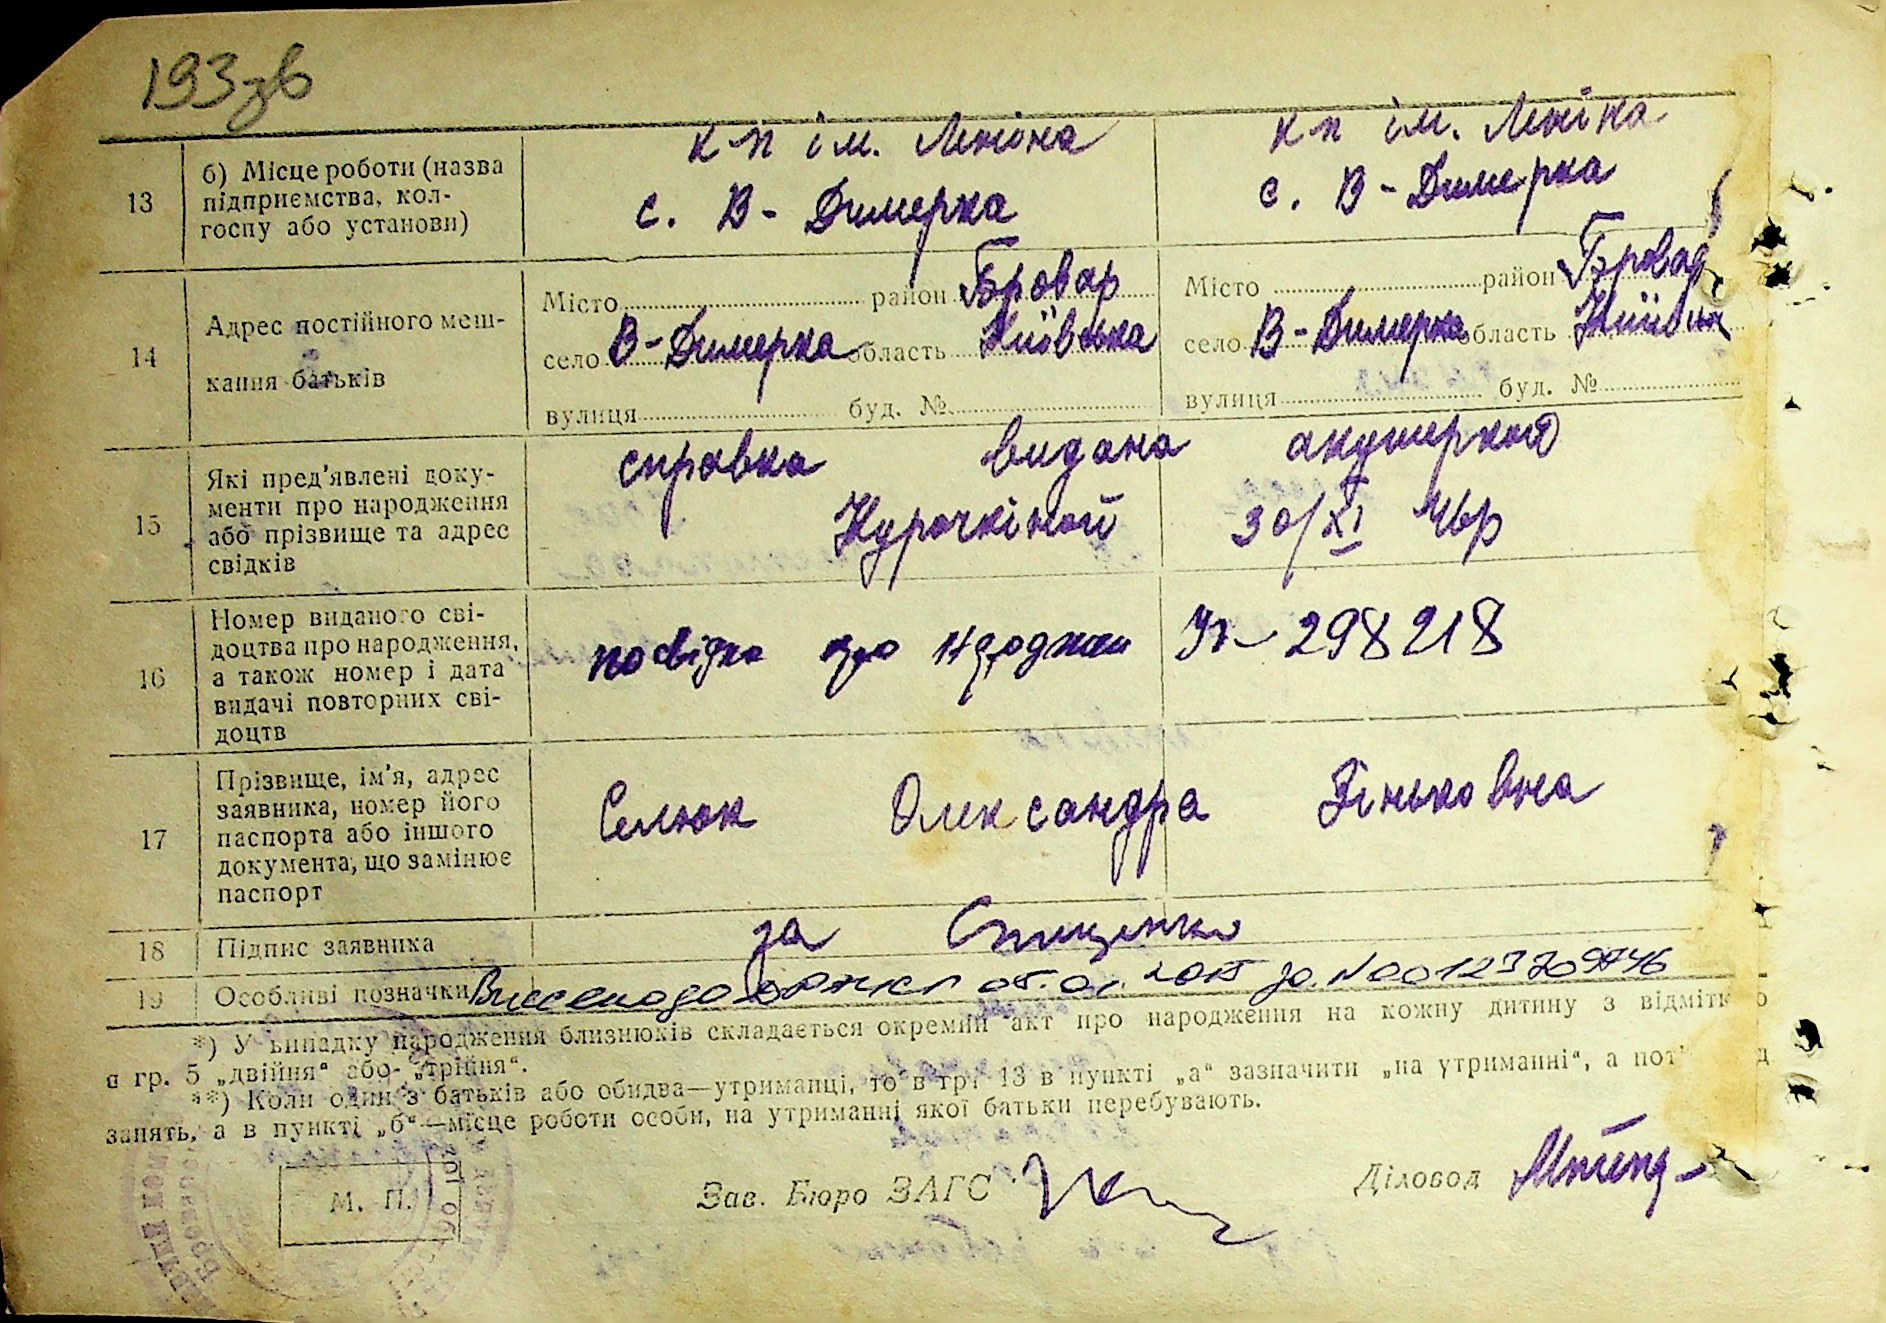 193зв
13
б) Місце роботи (назва
підприємства, кол-
госпу або установи)
к п ім. Леніна
с. В - Димерка
к п ім. Леніна
с. В - Димерка
14
Адрес постійного меш-
кання батьків
Місто район Бровар
село В-Димерка область Київська
вулиця буд. №
Місто район Бровар
село В-Димерка область Київськ
вулиця буд. №
15
Які пред'явлені доку-
менти про народження
або прізвище та адрес
свідків
справка видана акушеркой
Курочкіной 30/XI
16
Номер виданого сві-
доцтва про народження,
а також номер і дата
видачі повторних сві-
доцтв
посвідка про 298218
17
Прізвище, ім'я, адрес
заявника, номер його
паспорта або іншого
документа, що замінює
паспорт
Селюк Олександра Зіньковна
18
Підпис заявника
за
19
Особливі позначки
*) У випадку народження близнюків складається окремий акт про народження на кожну дитину з
в гр. 5 „двійня“ або- „трійня“.
**) Коли один з батьків або обидва—утриманці, то в грі 13 в пункті „а“ зазначити „на утриманні“, а
занять, а в пункті „б“—місце роботи особи, на утриманні якої батьки перебувають.
М. П.
Зав. Бюро ЗАГС
Діловод